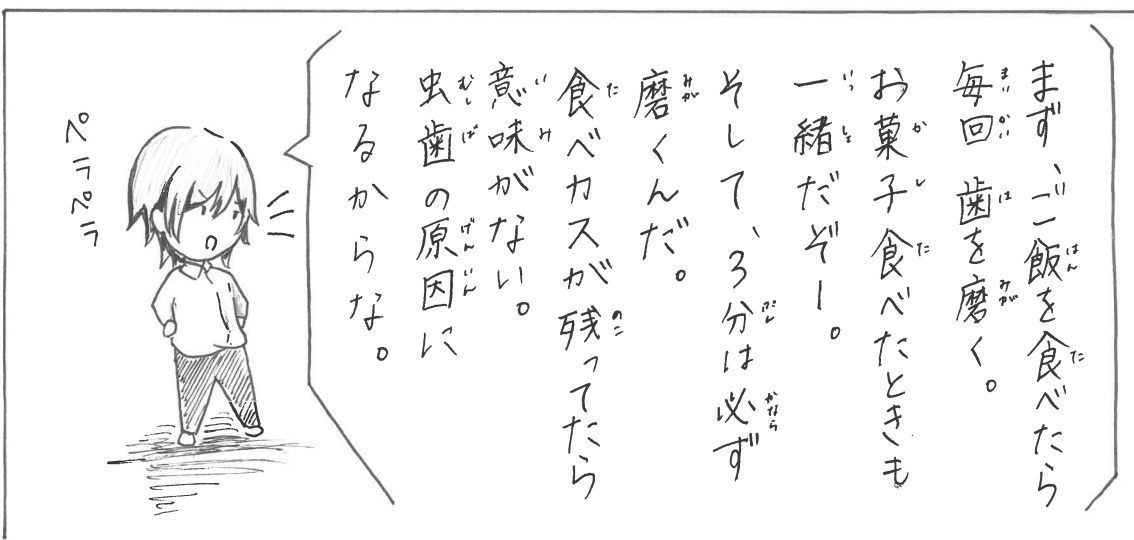 まず、ご飯を食べたら
毎回歯を磨く。
お菓子食べたときも
一緒だぞー。
そして、3分は必ず
磨くんだ。
食べカスが残ってたら
意味がない。
虫歯の原因に
なるからな。
ペラペラ